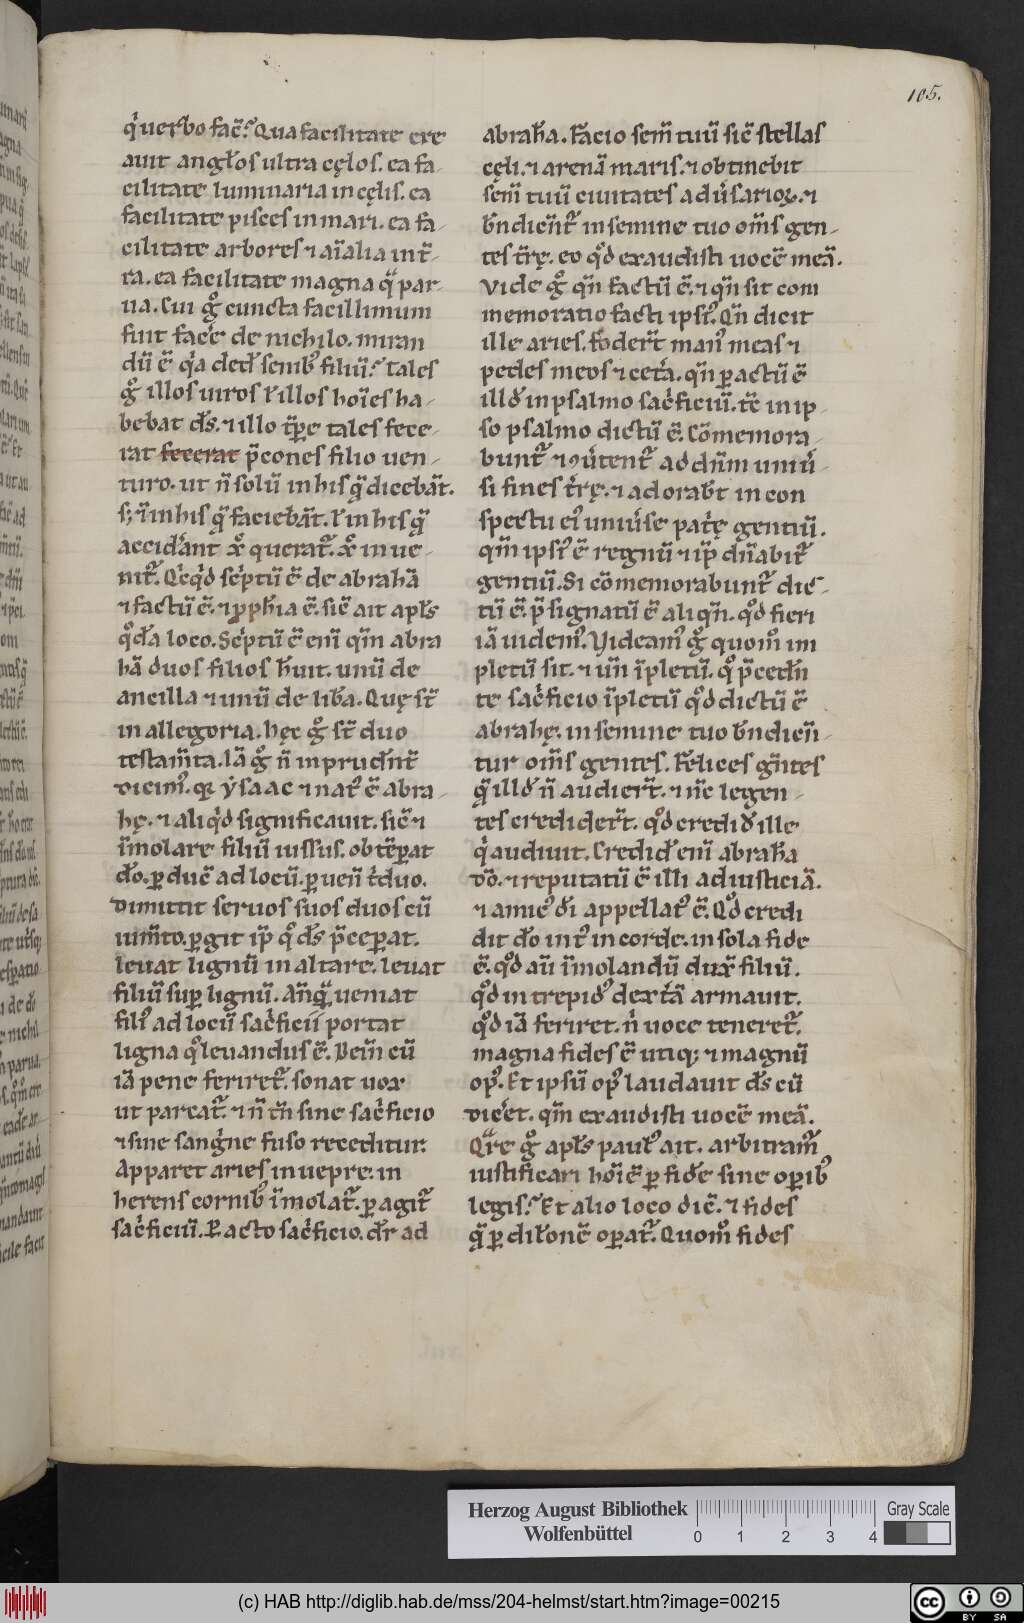 105.
q̇ uerbo fac̄? Qua facilitate cre
auit angl̄os ultra cęlos. ea fa-
cilitate luminaria in cęlis. ea
facilitate pisces in mari. ea fa-
cilitate arbores ⁊ aīalia in t̄-
ra. ea facilitate magna q̄ par
ua. Cui gͦ cuncta facillimum
fuit face̅ de nichilo. miran
dū ē q̇a ded̄ senib᷒ filiū? Tales
gͦ illos uiros ł illos hoīes ha-
bebat d̄s. ⁊ illo tp̄e tales fece-
rat fecerat p̄cones filio uen-
turo. ut n̄ solū in his q̄ dicebāt.
s; ⁊ in his q̄ faciebāt. ł in his q̄
accider̄ant xp̄ querat᷑. xp̄ inue-
nit᷑. Qċqd scptū ē de abrahā
⁊ factū ē. ⁊ ꝓph̄ia ē. sic̄ ait apl̄s
qͦdā loco. Scptū ē enī qm̄ abra
hā duos filios h̄uit. unū de
ancilla ⁊ unū de lib̄a. Quę st̄
in allegoria. hęc gͦ st̄ duo
testam̄ta. Iā gͦ n̄ inprudn̄t̄
dicim᷒. qr ẏsaac ⁊ nat᷒ ē abra-
hę. ⁊ aliq̇d significauit. sic̄ ⁊
īmolare filiū iussus. obtēꝑat
dō. ꝑduc̄ ad locū. ꝑuen̄ tͥduo.
dimittit seruos suos duos cū
ium̄to. ꝑgit ip̄ qͦ d̄s p̄ceꝑat.
leuat lignū in altare. leuat
filiū suꝑ lignū. Anq̄ ueniat
fili᷒ ad locū sacͥficii portat
ligna qͦ leuandus ē. Dein̄ cū
iā pene feriret᷑. sonat uox
ut parcat᷑. ⁊ n̄ tn̄ sine sacͥficio
⁊ sine sangͥne fuso receditur.
Apparet aries in uepre. in
herens cornib᷒ īmolat᷑. ꝑagit᷑
sacͥficiū. Ꝑacto sacͥficio. dr̄ ad
abrah̄a. Facio sem̄ tuū sic̄ stellas
cęli. ⁊ arenā maris. ⁊ obtinebit
sem̄ tuū ciuitates adu̇sarioꝝ. ⁊
bn̄dicen̄t᷑ in semine tuo om̄s gen-
tes t̄rę. eo qͦd exaudisti uocē meā.
Vide gͦ qn̄ factū ē. ⁊ qn̄ sit com
memoratio facti ipsi᷒. Qn̄ dicit
ille aries. foder̄t man᷒ meas ⁊
pedes meos ⁊ cet̄a. qn̄ ꝑactū ē
illd̄ in psalmo sacͥficiū. tc̄ in ip-
so psalmo dictū ē. Cōmemora-
bunt᷑ ⁊ ꝯu̇tent᷑ ad dn̄m uniu̇-
si fines t̄rę. ⁊ adorab̄t in con
spectu ei᷒ uniu̇se pat̄ę gentiū.
qm̄ ipsi᷒ ē regnū ⁊ ip̄ dn̄abit᷑
gentiū. Si cōmemorabunt᷑ dic-
tū ē. p̄signatū ē aliqn̄. qͦd fieri
iā uidem᷒. Videam᷒ gͦ quomͦ im
pletū sit. ⁊ un̄ īpletū. qͦ p̄cedn̄
te sacͥficio īpletū qͦd dictū ē
abrahę. in semine tuo bn̄dicen̄-
tur om̄s gentes. Felices gn̄tes
q̄ illd̄ n̄ audier̄t. ⁊ nc̄ legen-
tes credider̄t. qͦd credid̄ ille
q̇ audiuit. Credid̄ enī abrah̄a
dō. ⁊ reputatū ē illi ad iusticiā.
⁊ amic᷒ dī appellat᷒ ē. Qͦd credi
dit dō int᷒ in corde. in sola fide
ē. qͦd aū īmolandū dux̄ filiū.
qͦd intrepid᷒ dext̄ā armauit.
qͦd iā feriret. n̄ uoce teneret᷑.
magna fides ē utiq; ⁊ magnū
op᷒. Et ipsū op᷒ laudauit d̄s cū
dicet̄. qm̄ exaudisti uocē meā.
Qr̄e gͦ apl̄s paul᷒ ait. arbitram᷑
iustificari hoīē ꝑ fidē sine oꝑib᷒
legis? Et alio loco dic̄. ⁊ fides
q̄ ꝑ dil̄onē oꝑat᷑. Quomͦ fides
Herzog August Bibliothek
Wolfenbüttel
0 1 2 3 4
Gray Scale
(c) HAB http://diglib.hab.de/mss/204-helmst/start.htm?image=00215
cc BY SA